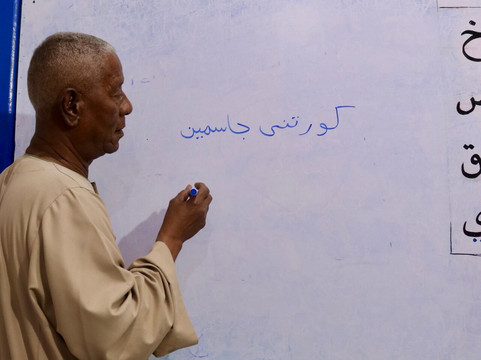 كورتنى جاسمين
خ
س
ق
ي